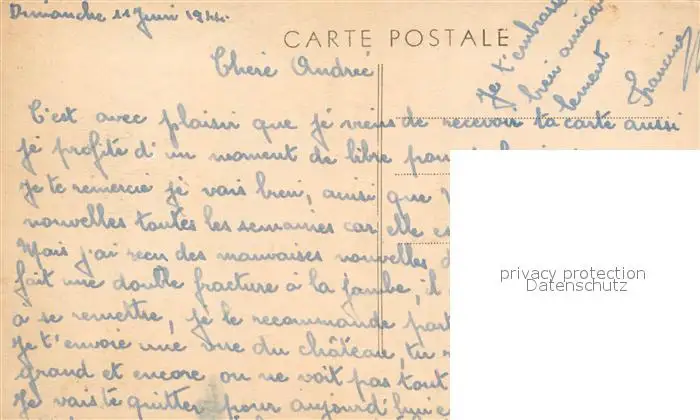 Dimanche 11 Juin 1944.
CARTE POSTALE
Chère Andrée
C'est avec plaisir que jé viens de recevoir ta carte aussi
jé profite d'un moment de libre pour
Je te remercie jé vais bien, ainsi que
nouvelles toutes les semaines car elle
Mais j'ai recu des mauvaises nouvelles
fait une double fracture à la jambe, il
à se remettre, jé le recommande
Je t'envoie une vue du château, tu
grand et encore on ne voit pas tout
Je vais te quitter pour aujourd'hui
Je t'embrasse
bien amica
lement
Francine
privacy protection
Datenschutz